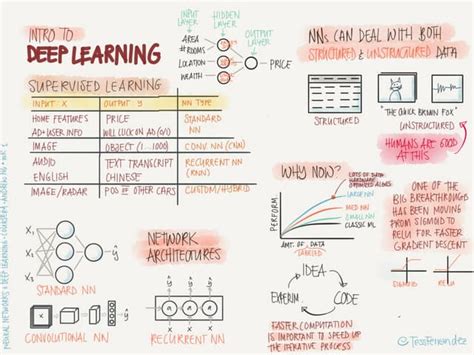 INTRO TO
DEEP LEARNING
INPUT LAYER
HIDDEN LAYER
OUTPUT LAYER
AREA
# ROOMS
LOCATION
WEALTH
PRICE
SUPERVISED LEARNING
INPUT X OUTPUT y NN TYPE
HOME FEATURES PRICE STANDARD NN
AD+USER INFO WILL CLICK ON AD (0/1)
IMAGE OBJECT (1...1000) CONV. NN (CNN)
AUDIO TEXT TRANSCRIPT RECURRENT NN (RNN)
ENGLISH CHINESE
IMAGE/RADAR POS OF OTHER CARS CUSTOM/HYBRID
X₁
X₂
X₃
ŷ
STANDARD NN
NETWORK
ARCHITECTURES
CONVOLUTIONAL NN
RECURRENT NN
NNs CAN DEAL WITH BOTH
STRUCTURED & UNSTRUCTURED DATA
STRUCTURED
"THE QUICK BROWN FOX"
UNSTRUCTURED
HUMANS ARE GOOD
AT THIS
WHY NOW?
PERFORM
LARGE NN
MED NN
SMALL NN
CLASSIC ML
AMT. OF DATA
LABELED
ONE OF THE
BIG BREAKTHROUGHS
HAS BEEN MOVING
FROM SIGMOID TO
RELU FOR FASTER
GRADIENT DESCENT
SIGMOID
RELU
IDEA
CODE
EXPERIM.
FASTER COMPUTATION
IS IMPORTANT TO SPEED UP
THE ITERATIVE PROCESS
@TessFerrandez